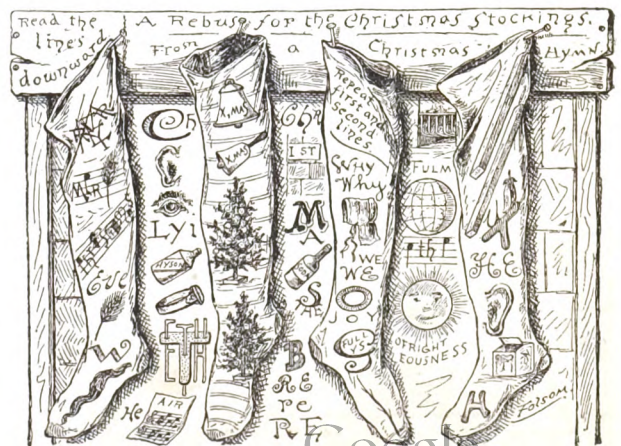 Read the lines downward
A Rebus for the Christmas Stockings.
From a Christmas Hymn.
Eve
W
Ch
Lyi
HYSON
ETH
He
AIR
X,MAS
XMAS
Chr
IST
M
A
S
B
RE
re
Repeat first and second lines
Why
Why
WE
WE
JOY
FULL
FULM
th
OF RIGHT
EOUSNESS
HE
H
Folsom